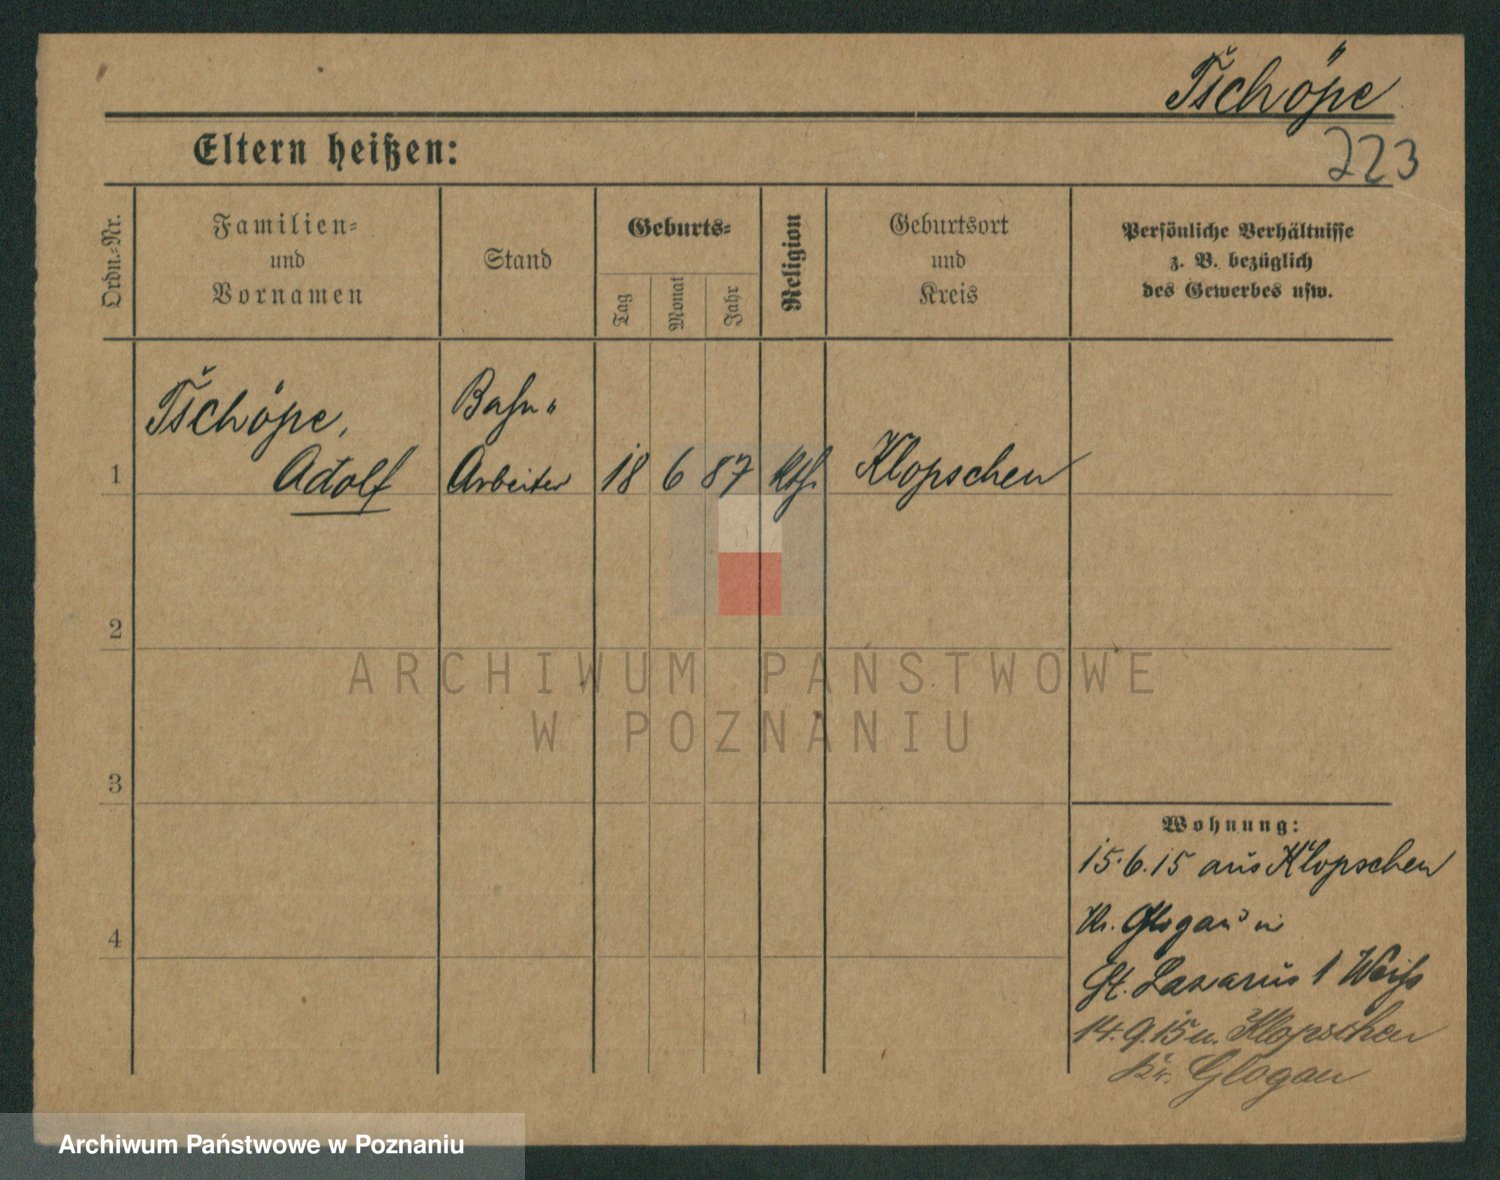 Tschöpe
223
Eltern heißen:
Ordn.-Nr.
Familien-
und
Vornamen
Stand
Geburts-
Tag
Monat
Jahr
Religion
Geburtsort
und
Kreis
Persönliche Verhältnisse
z. B. bezüglich
des Gewerbes usw.
1
Tschöpe,
Adolf
Bahn-
Arbeiter
18 6 87 kth. Klopschen
2
3
4
ARCHIWUM PAŃSTWOWE
W POZNANIU
Wohnung:
15.6.15 aus Klopschen
Kr. Glogau in
St. Lazarus 1 Weiss
14.9.15 n. Klopschen
Kr. Glogau
Archiwum Państwowe w Poznaniu